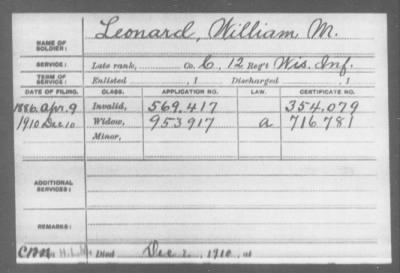 NAME OF SOLDIER: Leonard, William M.
SERVICE: Late rank, Co. C, 12 Reg't Wis. Inf.
TERM OF SERVICE: Enlisted , 1 Discharged , 1
DATE OF FILING. CLASS. APPLICATION NO. LAW. CERTIFICATE NO.
1886 Apr. 9 Invalid, 569.417 354.079
1910 Dec 10 Widow, 953917 a 716781
Minor,
ADDITIONAL SERVICES:
REMARKS:
Died Dec 2, 1910, at